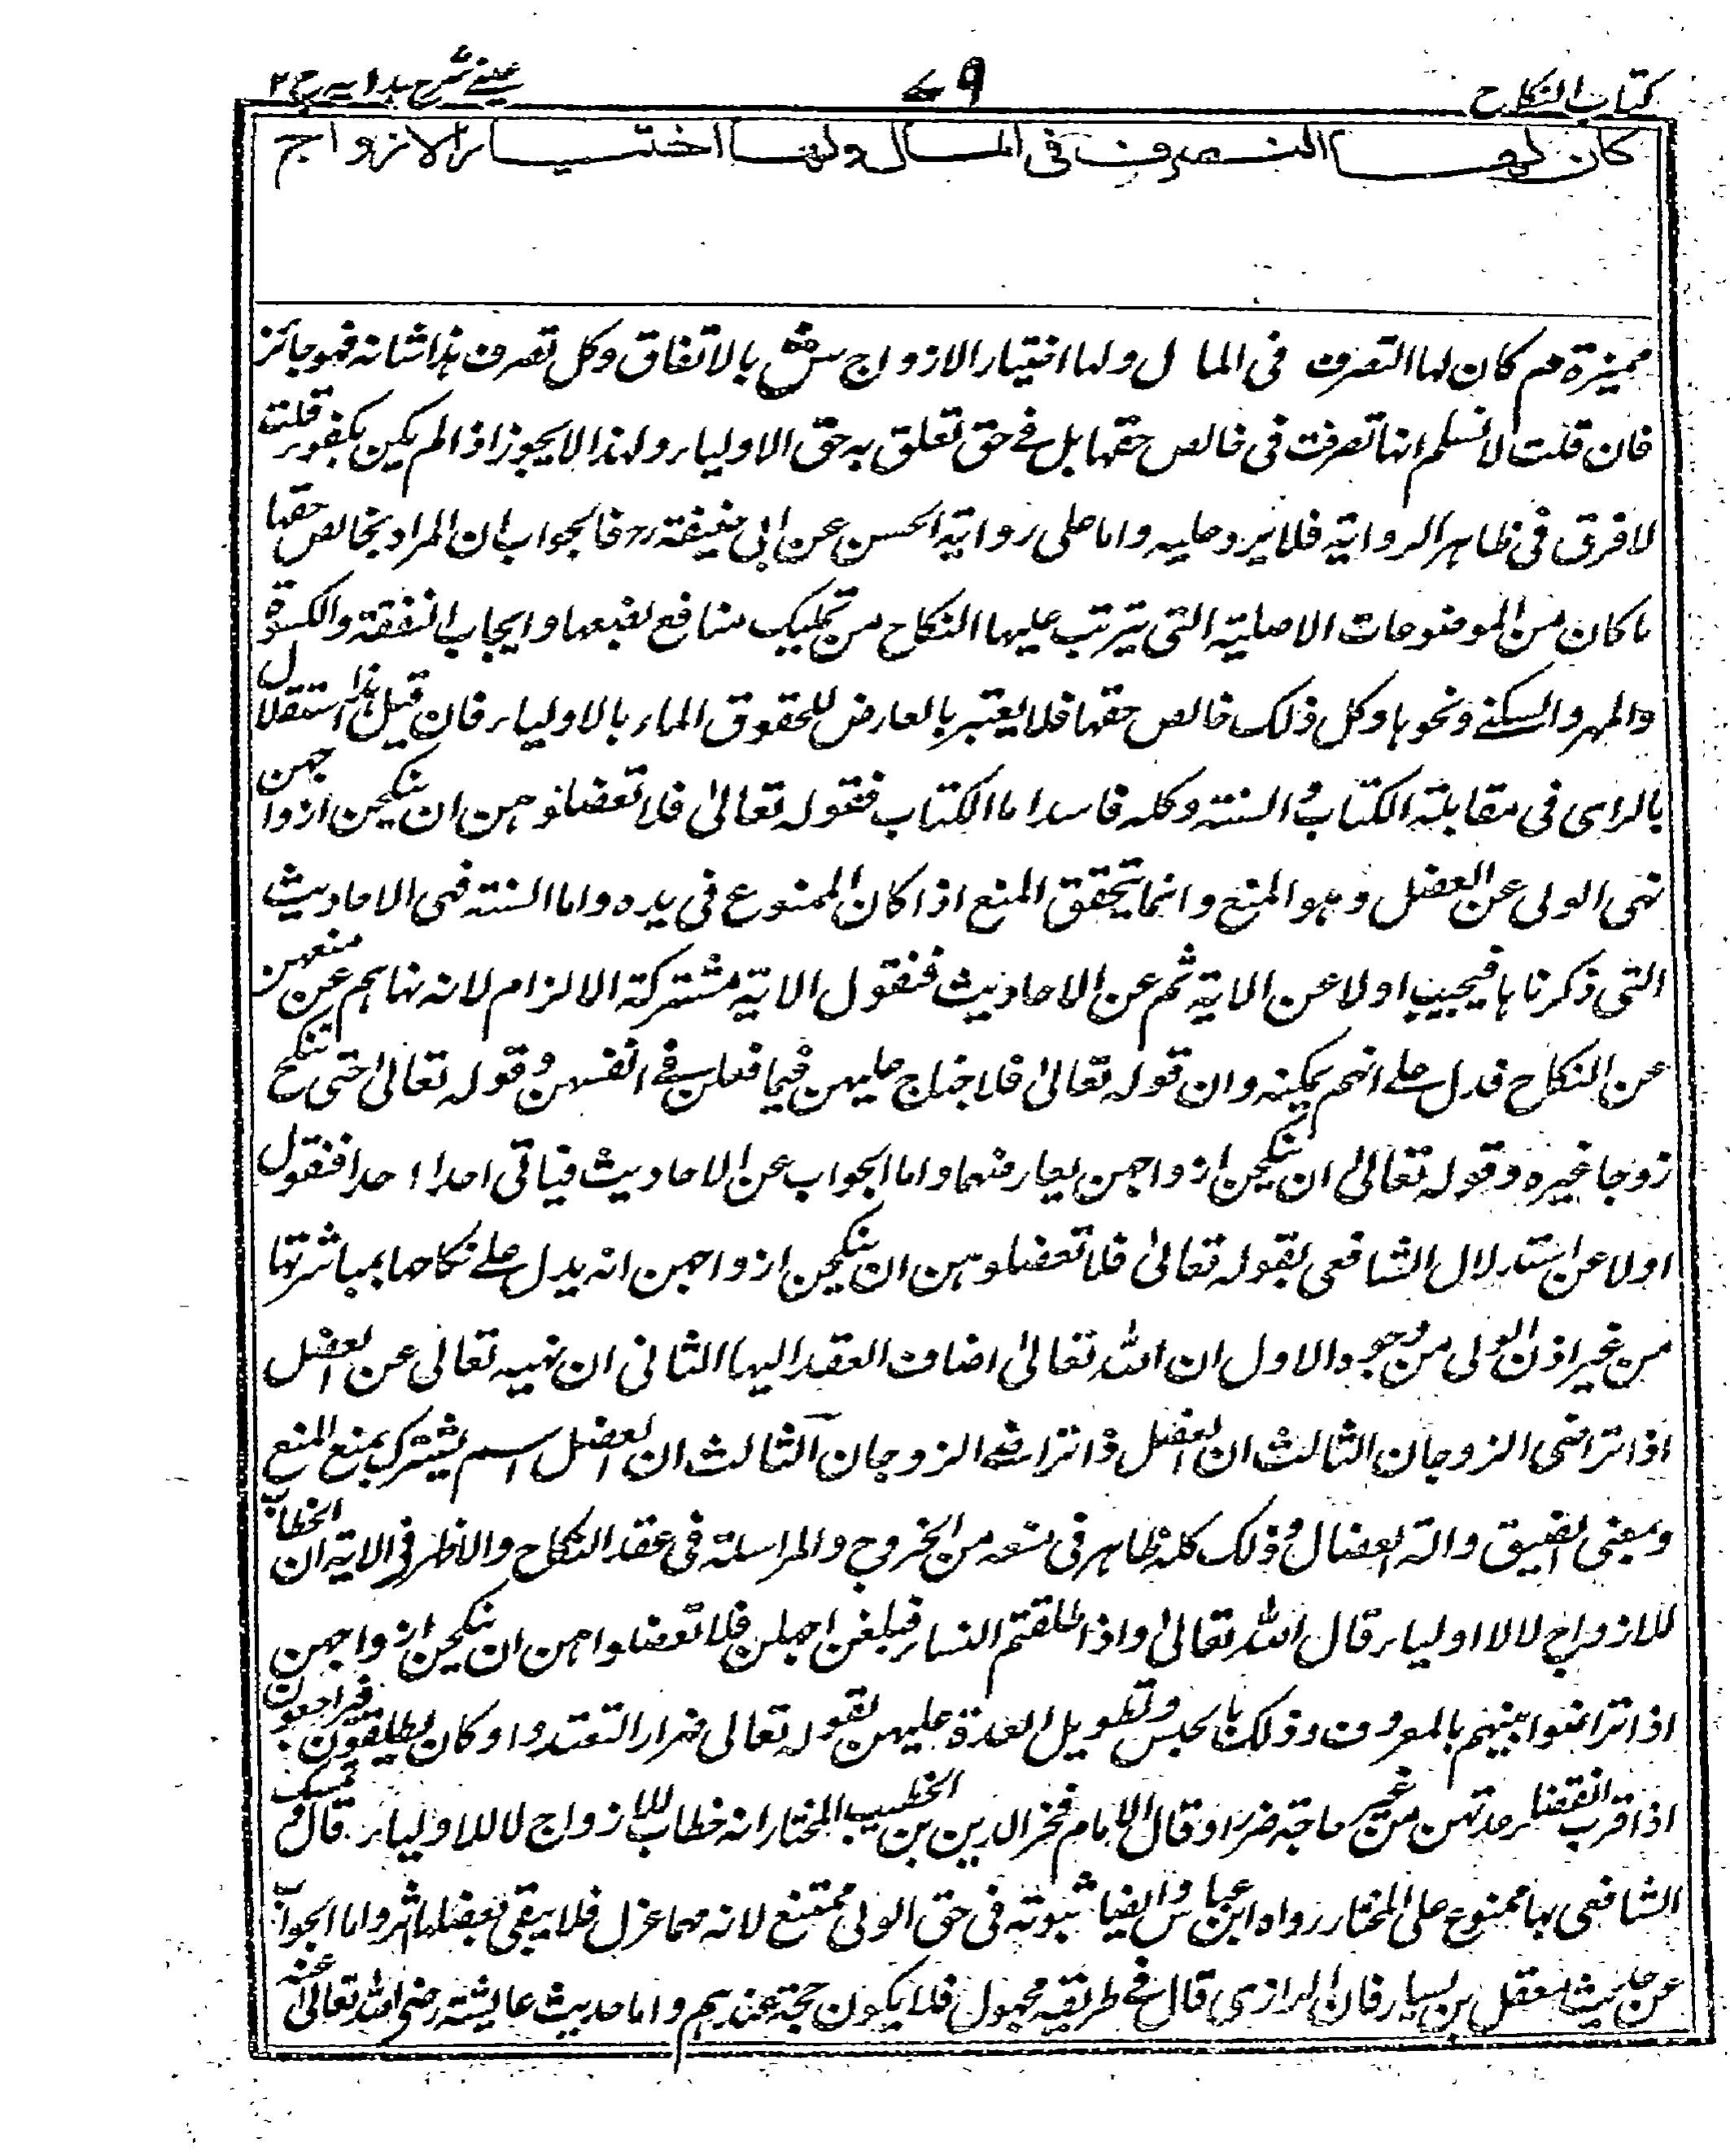 كتاب النكاح
٧٩
عينے شرح ہدايہ ج ٢
كان لها التصرف فى المال ولها اختيار الازواج
مميزة م كان لها التصرف فى المال ولها اختيار الازواج ش بالاتفاق وكل تصرف ہذا شانہ فہو جائز
فان قلت لا نسلم انہا تصرفت فى خالص حقہا بل فے حق تعلق بہ حق الاولياء ولہذا لا يجوز اذا لم يكن بكفور قلت
لا فرق فى ظاہر الرواية فلا يرد عليہ واما على رواية الحسن عن ابى حنيفة رح فالجواب ان المراد بخالص حقہا
ما كان من الموضوعات الاصلية التى يترتب عليہا النكاح من تمليك منافع بضعہا وايجاب النفقة والكسوة
والمہر والسكنے ونحوہا وكل ذلك خالص حقہا فلا يعتبر بالعارض للحقوق المار بالاولياء فان قيل ہذا استقلال
بالراى فى مقابلة الكتاب والسنة وكلہ فاسد اما الكتاب فقولہ تعالىٰ فلا تعضلوہن ان ينكحن ازواجہن
نہى الولى عن العضل وہو المنع وانما يتحقق المنع اذا كان الممنوع فى يدہ واما السنة فہى الاحاديث
التى ذكرناہا فيجيب اولا عن الاية ثم عن الاحاديث فنقول الاية مشتركة الالزام لانہ نہاہم عن منعہن
عن النكاح فدل علے انہم يمكنہ وان قولہ تعالىٰ فلا جناح عليہن فيما فعلن فے انفسہن وقولہ تعالىٰ حتى تنكح
زوجا غيرہ وقولہ تعالىٰ ان ينكحن ازواجہن يعارضہما واما الجواب عن الاحاديث فياتى احدا احدا فنقول
اولا عن استدلال الشافعى بقولہ تعالىٰ فلا تعضلوہن ان ينكحن ازواجہن انہ يدل علے نكاحہا بمباشرتہا
من غير اذن الولى من وجوہ الاول ان اللہ تعالىٰ اضاف العقد اليہا الثانى ان نہيہ تعالى عن العضل
اذا تراضى الزوجان الثالث ان العضل ذا تراضے الزوجان الثالث ان العضل اسم يشترك بمنع المنع
وبمعنى الضيق والتہ العضال وذلك كلہ ظاہر فى منعہ من الخروج والمراسلة فى عقد النكاح والاظہر فى الاية ان الخطاب
للازواج لا لا اولياء قال اللہ تعالىٰ واذا طلقتم النساء فبلغن اجلہن فلا تعضلواہن ان ينكحن ازواجہن
اذا تراضوا بينہم بالمعروف وذلك بالحبس وتطويل العدة عليہن لقولہ تعالى ضرارا لتعتدوا وكان يطلقون فيراجعون
اذا قرب انقضاء عدتہن من غير حاجة ضررا وقال الامام فخر الدين بن الخطيب المختار انہ خطاب للازواج لا للاولياء قال وتمسك
الشافعى بہا ممنوع على المختار رواہ ابن عباس وايضا ثبوتہ فى حق الولى ممتنع لانہ مہما عزل فلا يبقى لعضلہ اثر واما الجواب
عن حديث معقل بن يسار فان الرازى قال فے طريقہ مجہول فلا يكون حجة عندہم واما حديث عايشة رضى اللہ تعالىٰ عنہ